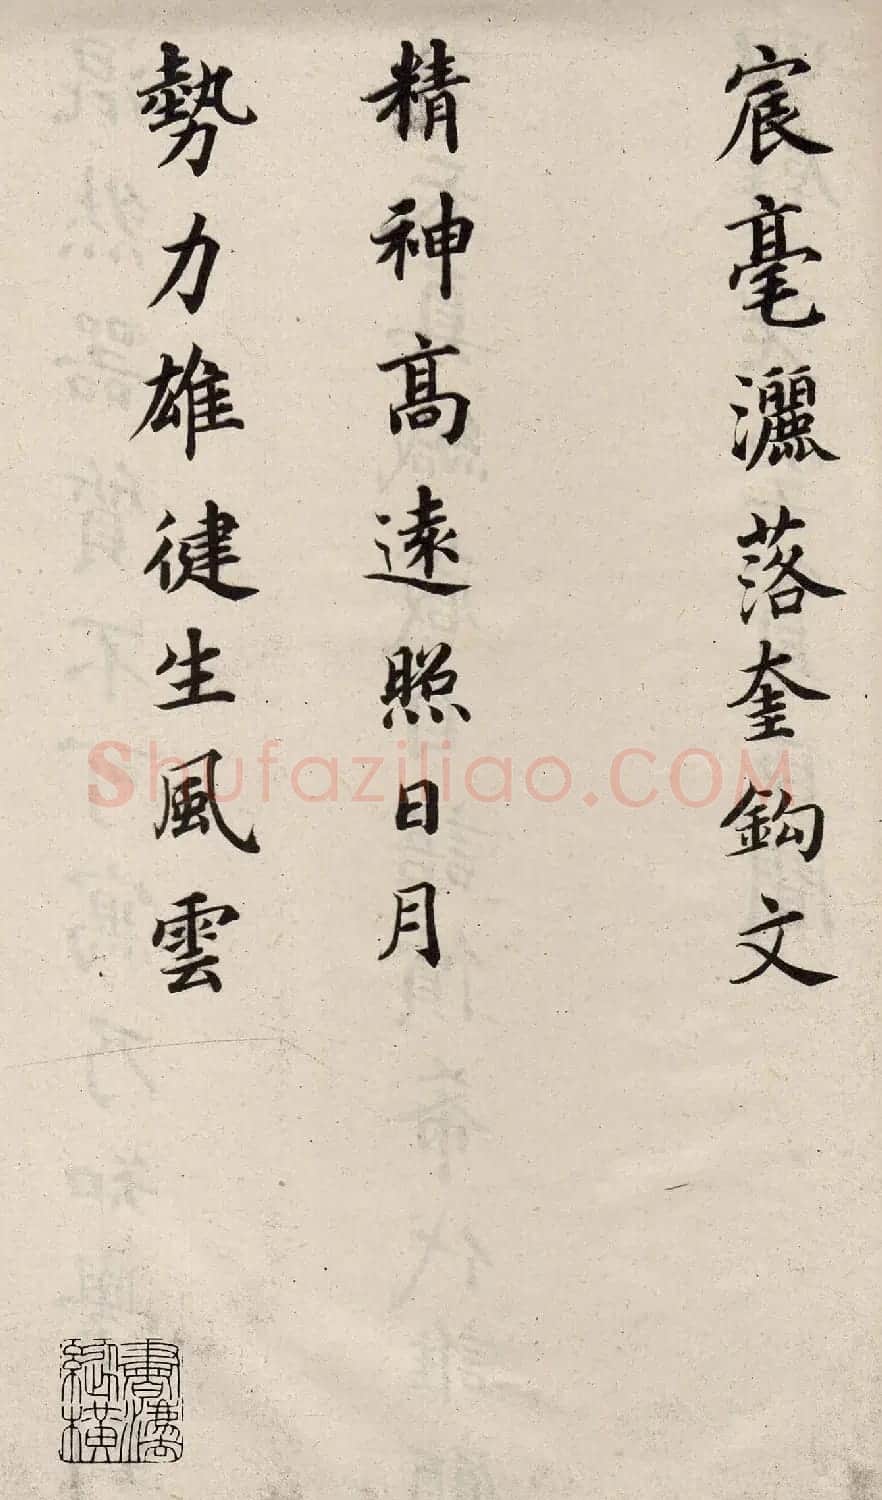 宸毫灑落奎鈎文
精神高遠照日月
勢力雄健生風雲
Shufaziliao.COM